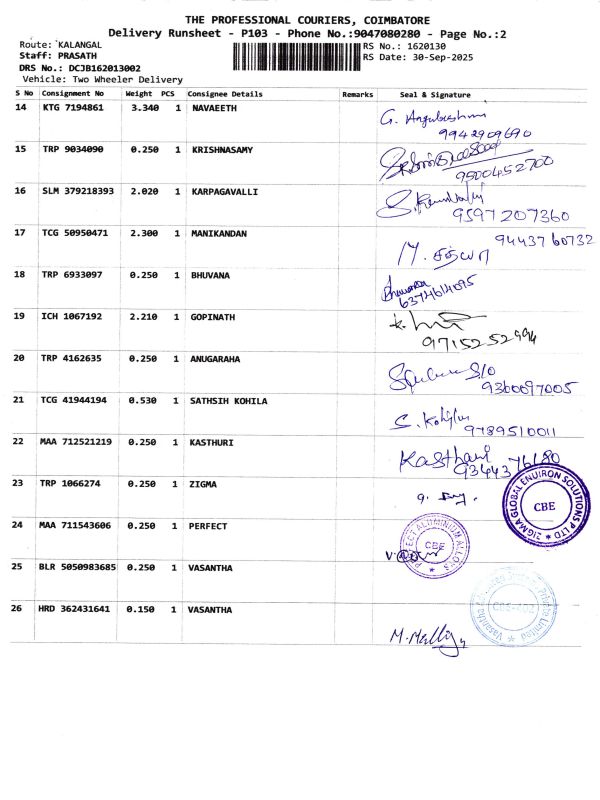 THE PROFESSIONAL COURIERS, COIMBATORE
Delivery Runsheet - P103 - Phone No.:9047080280 - Page No.:2
Route: KALANGAL
RS No.: 1620130
Staff: PRASATH
RS Date: 30-Sep-2025
DRS No.: DCJB162013002
Vehicle: Two Wheeler Delivery
S No Consignment No Weight PCS Consignee Details Remarks Seal & Signature
14 KTG 7194861 3.340 1 NAVAEETH G.
9942909690
15 TRP 9034090 0.250 1 KRISHNASAMY
9500452700
16 SLM 379218393 2.020 1 KARPAGAVALLI S.
9597207360
17 TCG 50950471 2.300 1 MANIKANDAN 9443760732
M. சத்யா
18 TRP 6933097 0.250 1 BHUVANA Bhuvana
6374614095
19 ICH 1067192 2.210 1 GOPINATH
9715252994
20 TRP 4162635 0.250 1 ANUGARAHA S/O
9360097005
21 TCG 41944194 0.530 1 SATHSIH KOHILA S. Kohila
9789510011
22 MAA 712521219 0.250 1 KASTHURI Kasthuri
9344376180
23 TRP 1066274 0.250 1 ZIGMA
ZIGMA GLOBAL ENVIRON SOLUTIONS P LTD
CBE
24 MAA 711543606 0.250 1 PERFECT
PERFECT ALUMINIUM ALLOYS
CBE
25 BLR 5050983685 0.250 1 VASANTHA
26 HRD 362431641 0.150 1 VASANTHA
Vasantha Private Limited